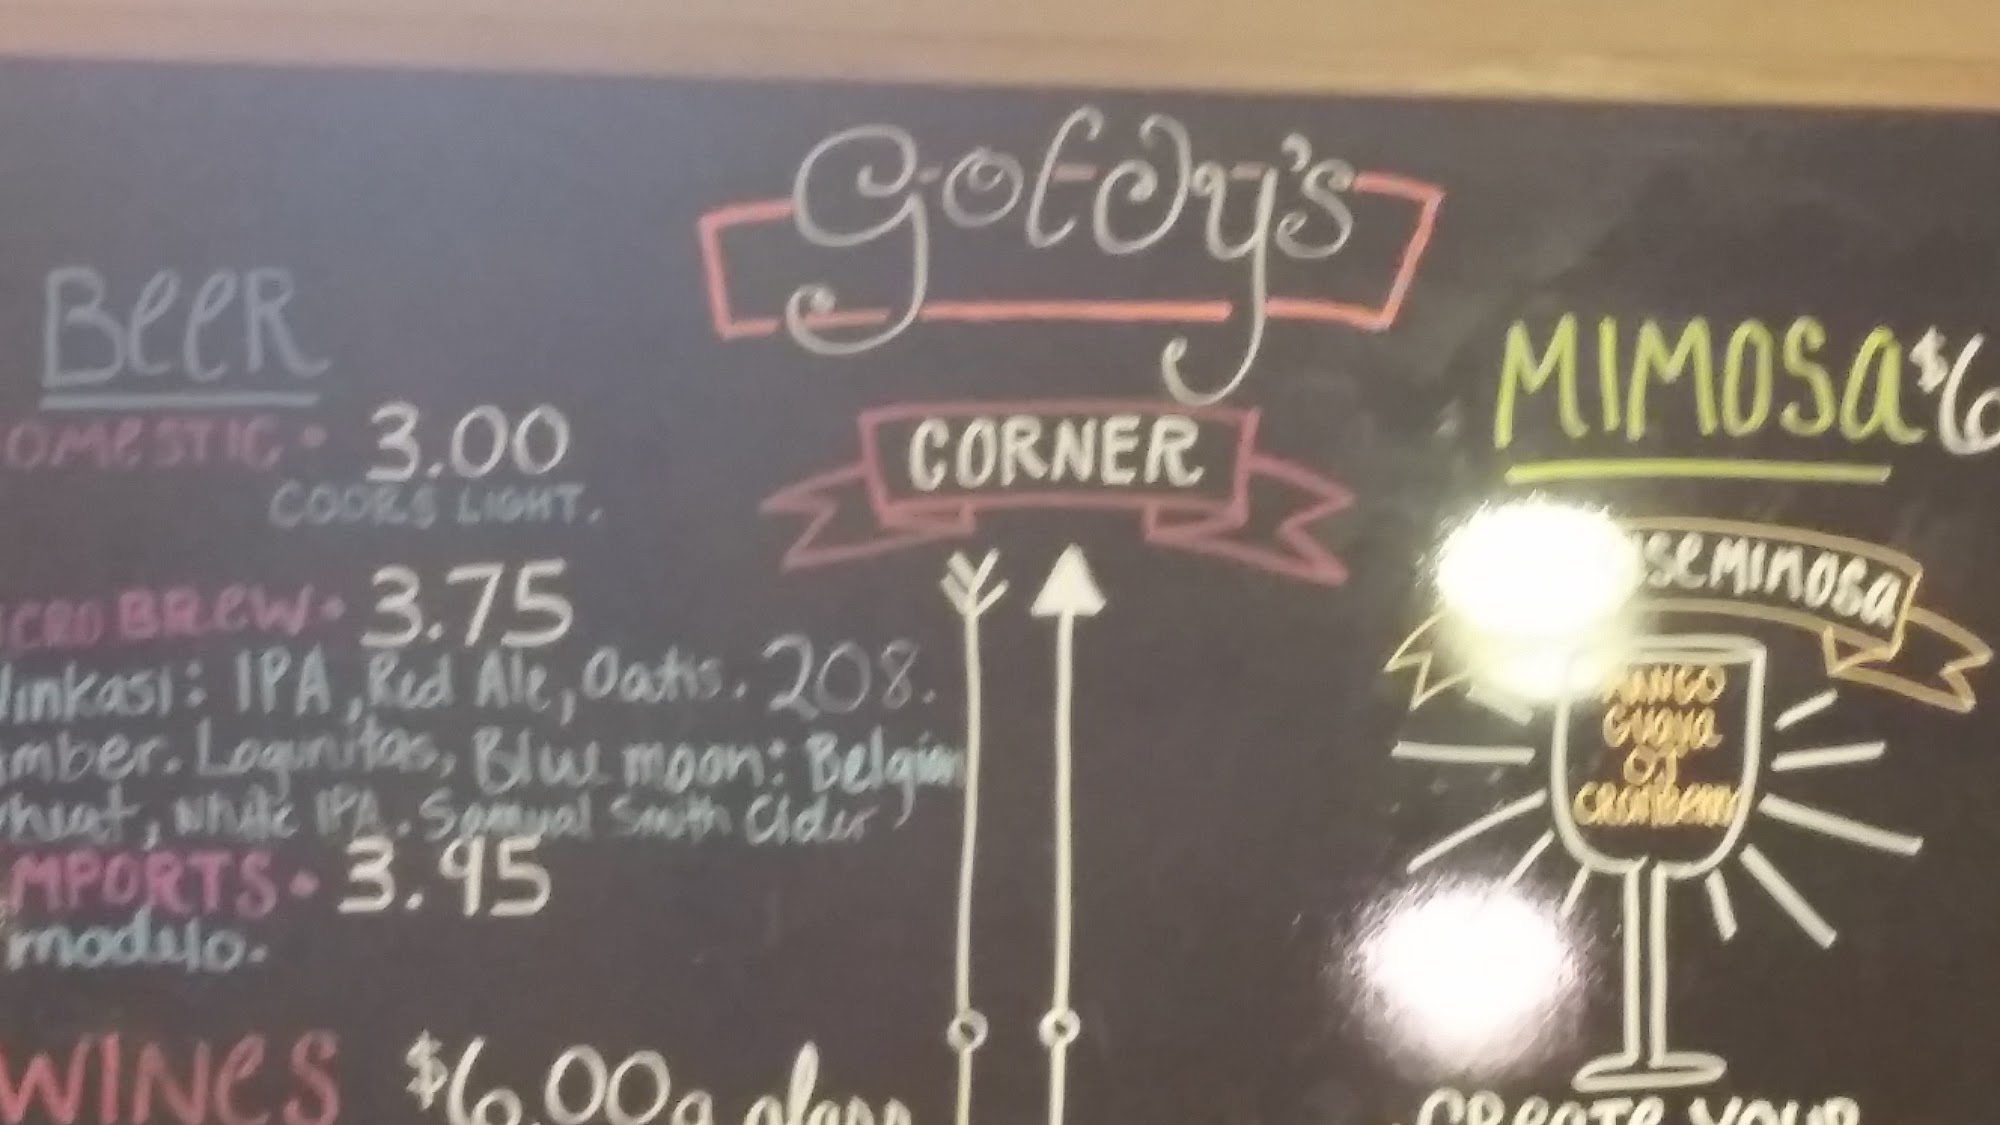 Goldy's
CORNER
Beer
OMESTIC • 3.00
COORS LIGHT.
CRO BREW • 3.75
inkasi: IPA, Red Ale, Oatis. 208.
mber. Lagunitas, Blue moon: Belgian
heat, White IPA. Samual Smith Cider
MPORTS • 3.95
modelo.
WINES $6.00 a glass
MIMOSA $6
SEMIMOSA
MANGO
GUAVA
OJ
CRANBERRY
CREATE YOUR